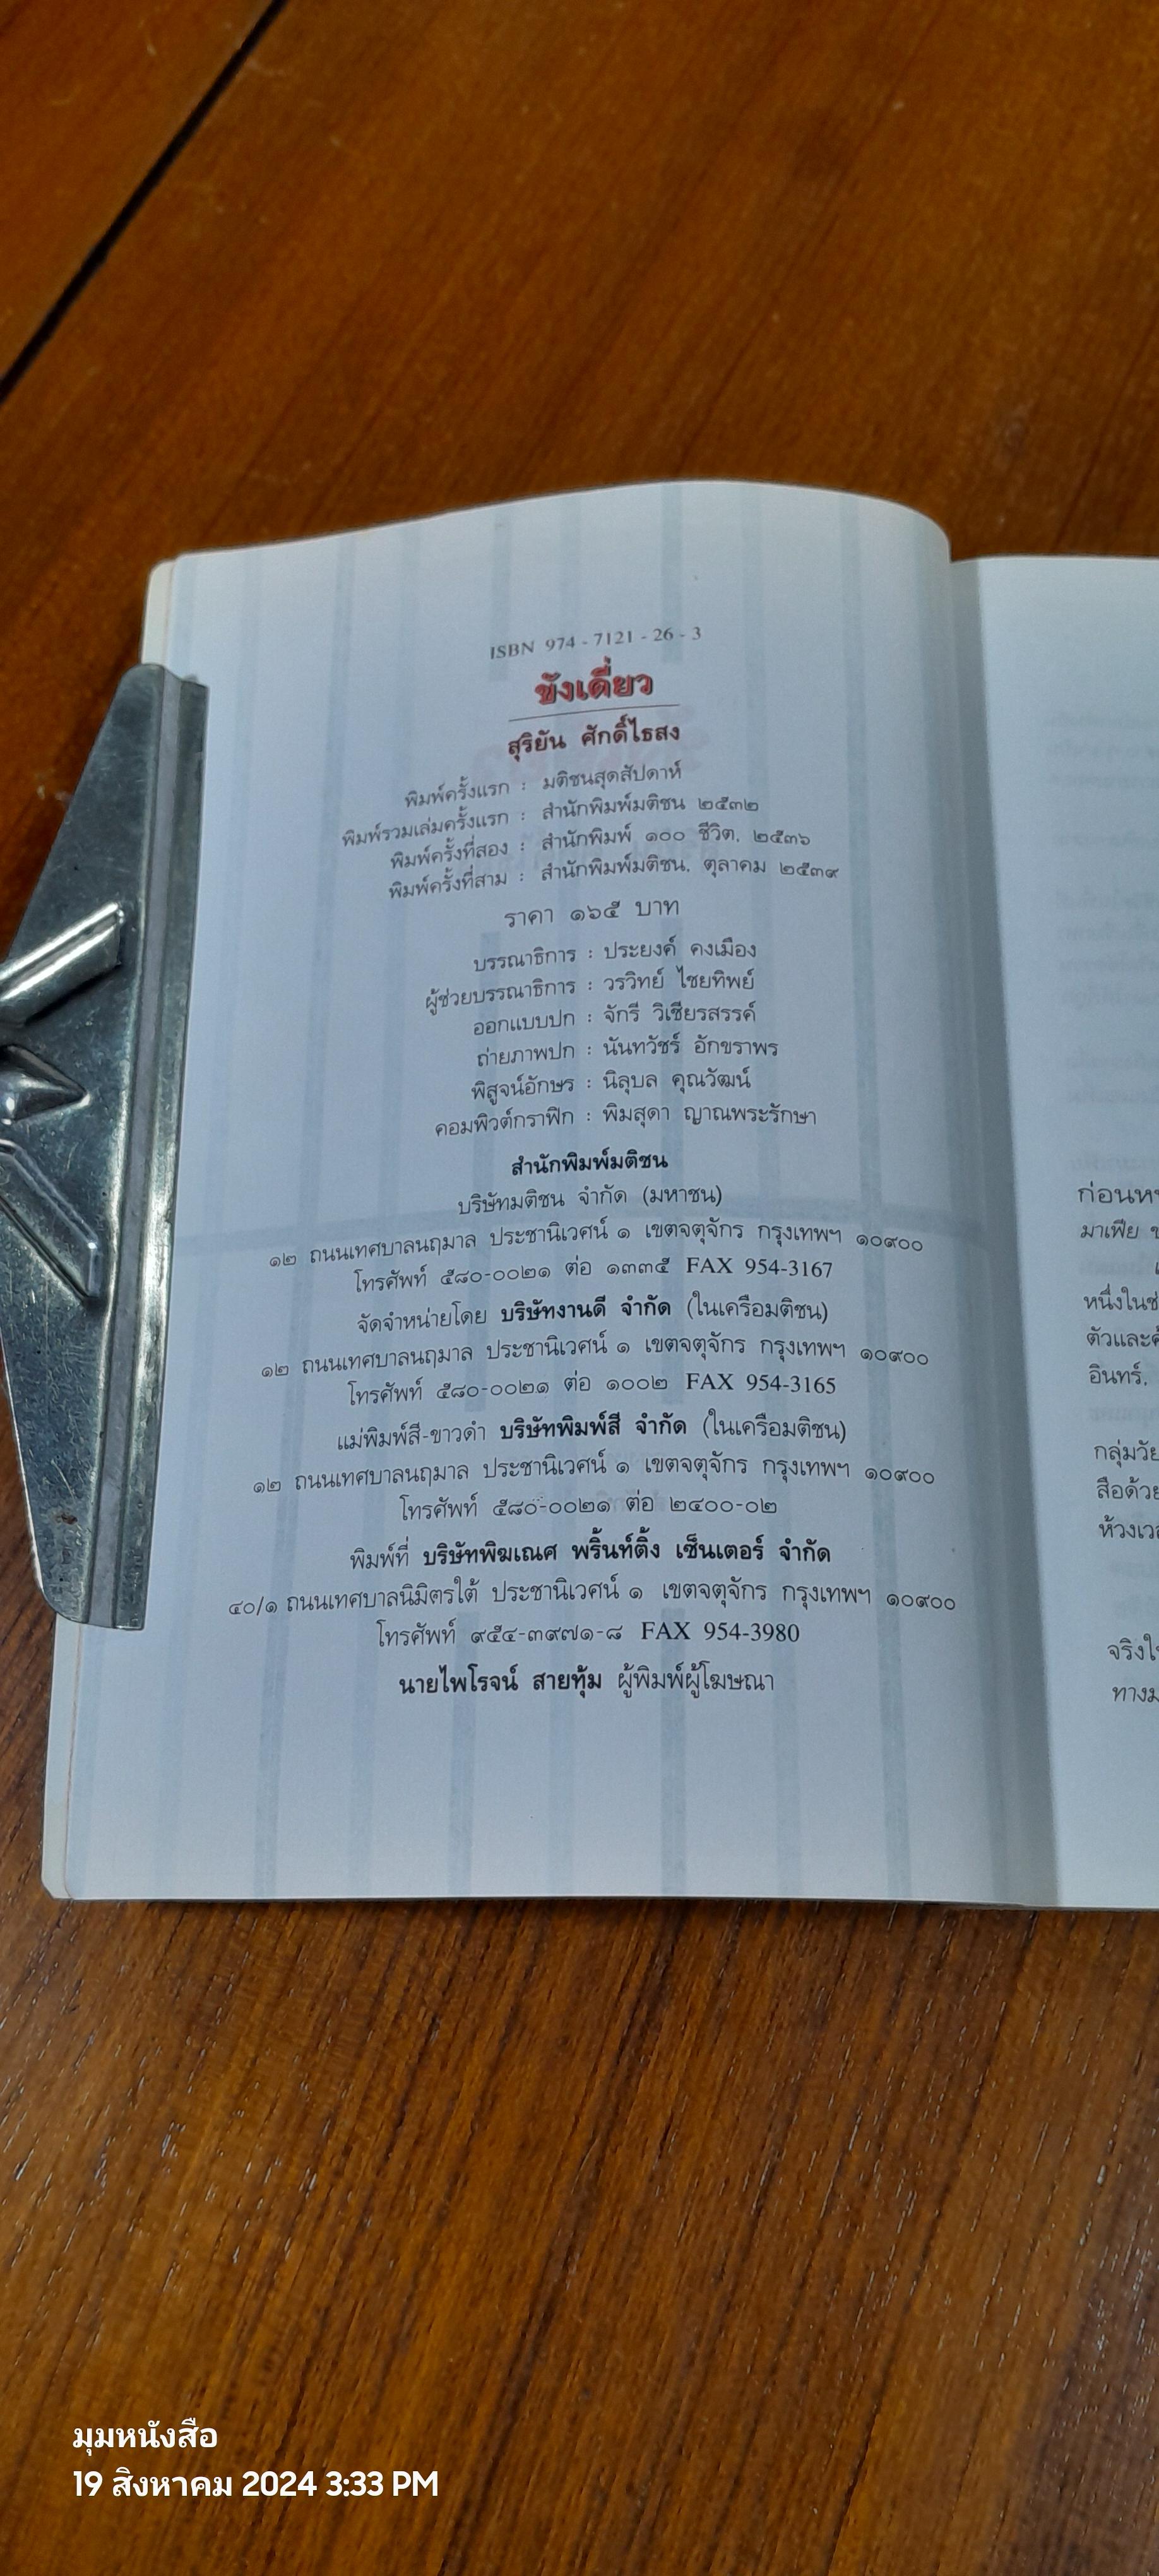 ISBN 974 - 7121 - 26 - 3
ขังเดี่ยว
สุริยัน ศักดิ์ไธสง
พิมพ์ครั้งแรก : มติชนสุดสัปดาห์
พิมพ์รวมเล่มครั้งแรก : สำนักพิมพ์มติชน ๒๕๓๒
พิมพ์ครั้งที่สอง : สำนักพิมพ์ ๑๐๐ ชีวิต, ๒๕๓๖
พิมพ์ครั้งที่สาม : สำนักพิมพ์มติชน, ตุลาคม ๒๕๓๙
ราคา ๑๖๕ บาท
บรรณาธิการ : ประยงค์ คงเมือง
ผู้ช่วยบรรณาธิการ : วรวิทย์ ไชยทิพย์
ออกแบบปก : จักรี วิเชียรสรรค์
ถ่ายภาพปก : นันทวัชร์ อักขราพร
พิสูจน์อักษร : นิลุบล คุณวัฒน์
คอมพิวต์กราฟิก : พิมสุดา ญาณพระรักษา
สำนักพิมพ์มติชน
บริษัทมติชน จำกัด (มหาชน)
๑๒ ถนนเทศบาลนฤมาล ประชานิเวศน์ ๑ เขตจตุจักร กรุงเทพฯ ๑๐๙๐๐
โทรศัพท์ ๕๘๐-๐๐๒๑ ต่อ ๑๓๓๕ FAX 954-3167
จัดจำหน่ายโดย บริษัทงานดี จำกัด (ในเครือมติชน)
๑๒ ถนนเทศบาลนฤมาล ประชานิเวศน์ ๑ เขตจตุจักร กรุงเทพฯ ๑๐๙๐๐
โทรศัพท์ ๕๘๐-๐๐๒๑ ต่อ ๑๐๐๒ FAX 954-3165
แม่พิมพ์สี-ขาวดำ บริษัทพิมพ์สี จำกัด (ในเครือมติชน)
๑๒ ถนนเทศบาลนฤมาล ประชานิเวศน์ ๑ เขตจตุจักร กรุงเทพฯ ๑๐๙๐๐
โทรศัพท์ ๕๘๐-๐๐๒๑ ต่อ ๒๔๐๐-๐๒
พิมพ์ที่ บริษัทพิฆเณศ พริ้นท์ติ้ง เซ็นเตอร์ จำกัด
๔๐/๑ ถนนเทศบาลนิมิตรใต้ ประชานิเวศน์ ๑ เขตจตุจักร กรุงเทพฯ ๑๐๙๐๐
โทรศัพท์ ๙๕๔-๓๙๗๑-๘ FAX 954-3980
นายไพโรจน์ สายทุ้ม ผู้พิมพ์ผู้โฆษณา
มาเฟีย
หนึ่งในช่
ตัวและ
อินทร์,
กลุ่มวัย
สือด้วย
จริงใ
ทางม
มุมหนังสือ
19 สิงหาคม 2024 3:33 PM